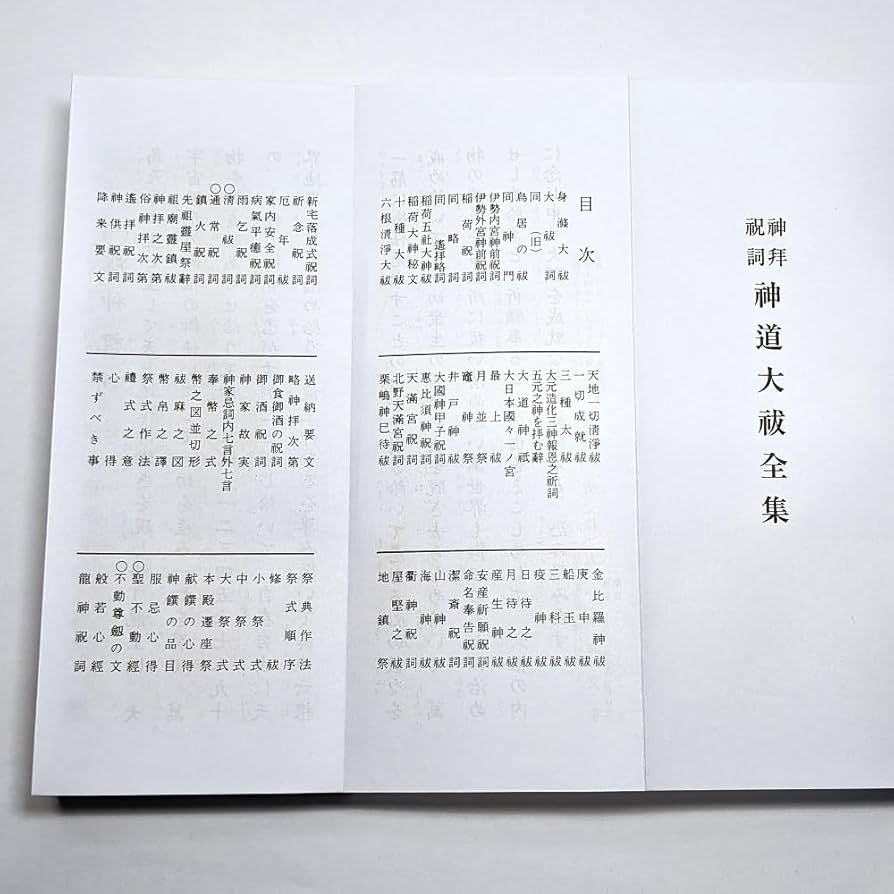 神拝
祝詞
神道大祓全集
目次
身滌大祓
大祓詞
同(旧)
鳥居の祓
同神門
伊勢内宮神前祝詞
伊勢外宮神前祝詞
稲荷祝詞
同略詞
同遙拝略詞
稲荷五社大神祓
稲荷大神秘文
十種大祓
六根清淨大祓
天地一切清淨祓
一切成就祓
三種太祓
大元造化三神報恩之祈詞
五元之神を拝む辭
大道神祇
大日本國々一ノ宮
最上祓
月並祭
竈神祭
井戸神祓
大國神甲子祝詞
恵比須神祝詞
天満宮祝詞
北野天満宮祝詞
栗嶋神巳待祓
金比羅神祓
庚申祓
船玉祓
三科祓
疫神祓
日待之祓
月待之祓
産生神祓
安産祈願祝詞
命名奉告祝詞
潔斎祝詞
山神祓
海神祓
衢神祝詞
屋堅之祓
地鎮祭
新宅落成式祝詞
祈念祝詞
厄年祓
病氣平癒祝詞
家内安全祝詞
雨乞祝詞
○清祓詞
○通常祝詞
鎮火祝詞
先祖靈屋祭辭
祖廟靈鎮祓
神拝之次第
俗神拝次第
遙拝祝詞
神供祝詞
降来要文
送納要文
略神拝次第
御食御酒の祝詞
御酒祝詞
神家故実
神家忌詞内七言外七言
奉幣之式
幣之図並切形
祓麻之図
幣帛之譯
祭式作法
禮式之意
心得
禁ずべき事
祭典作法
祭式順序
修祓
小祭式
中祭式
大祭式
本殿遷座祭
献饌の心得
神饌の品目
服忌心得
○聖不動經
○不動尊劔の文
般若心經
龍神祝詞